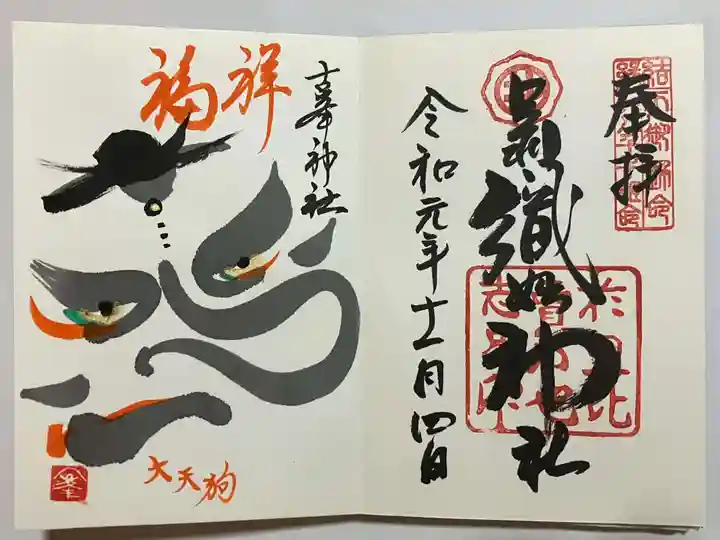 奉拝
足利織姫神社
令和元年十一月四日
古峯神社
祥福
大天狗